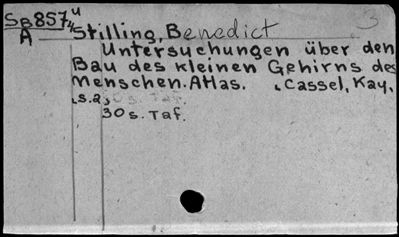 SB857u 3
A Stilling, Benedict
Untersuchungen über den
Bau des kleinen Gehirns des
Menschen. Atlas. Cassel, Kay,
s.a.
30 s. Taf.